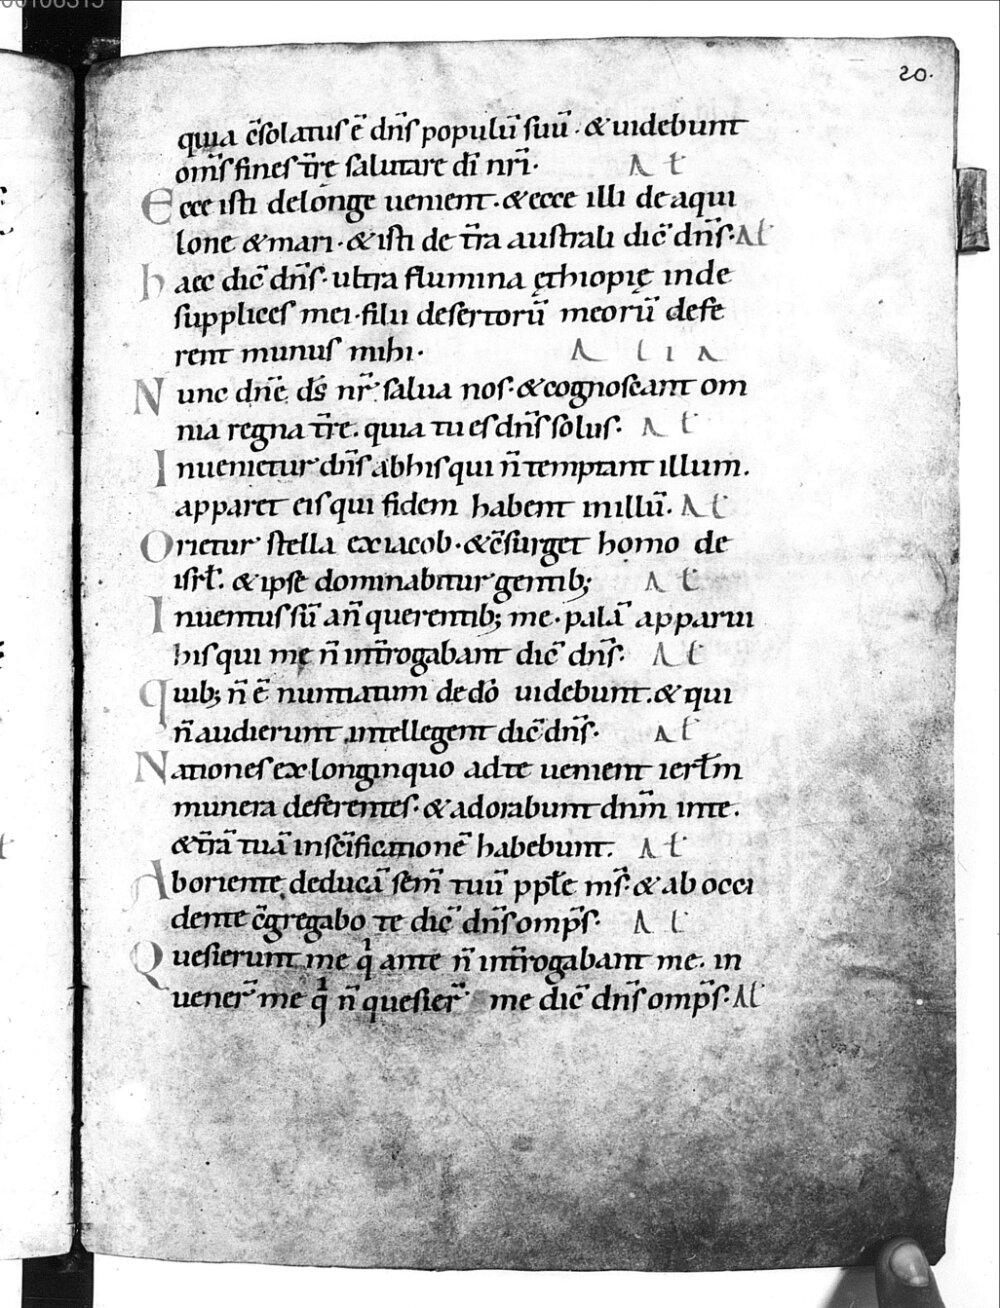 20.
quia c̄solatus ē dn̄s populū suū · & uidebunt
om̄s fines t̄rę salutare dī nr̄i · A ł
Ecce isti delonge uenient · & ecce illi de aqui
lone & mari · & isti de t̄ra australi dic̄ dn̄s · Ał
haec dic̄ dn̄s · ultra flumina ęthiopię inde
supplices mei · filii desertorū meorū defe
rent munus mihi · A l i a
Nunc dn̄e ds̄ nr̄ salua nos · & cognoscant om
nia regna t̄rę . quia tu es dn̄s solus · A ł
Inuenietur dn̄s ab his qui n̄ temptant illum .
apparet eis qui fidem habent in illū . A ł
Orietur stella ex iacob · & c̄surget homo de
isrł . & ipse dominabitur gentib; A ł
Inuentus sū an̄ querentib; me · palā apparui
his qui me n̄ int̄rogabant dic̄ dn̄s · A ł
quib; n̄ ē nuntiatum de dō uidebunt . & qui
n̄ audierunt intellegent dic̄ dn̄s · A ł
Nationes ex longinquo ad te uenient ierłm
munera deferentes · & adorabunt dnm̄ in te .
& t̄rā tuā in sc̄ificationē habebunt . A ł
Ab oriente deducā sem̄ tuū ppłe ms̄ · & ab occi
dente c̄gregabo te dic̄ dn̄s omp̄s · A ł
Quesierunt me q̍ ante n̄ int̄rogabant me . in
uener̄ me q̍ n̄ quesier̄ me dic̄ dn̄s omp̄s · Ał